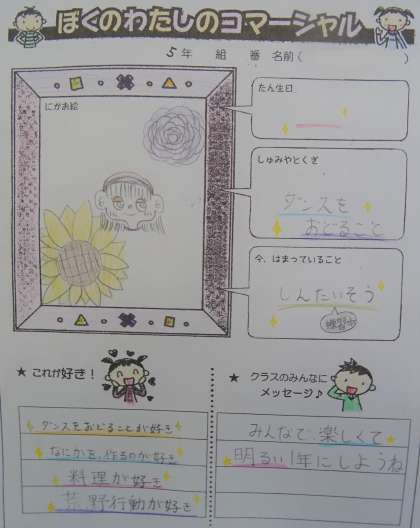 ぼくのわたしのコマーシャル
5年 組 番 名前(
にがお絵
たん生日
しゅみやとくぎ
ダンスを
おどること
今、はまっていること
しんたいそう
練習中
★ これが好き!
ダンスをおどることが好き
なにかを、作るのが好き
料理が好き
荒野行動が好き
★ クラスのみんなに
メッセージ♪
みんなで楽しくて
明るい1年にしようね